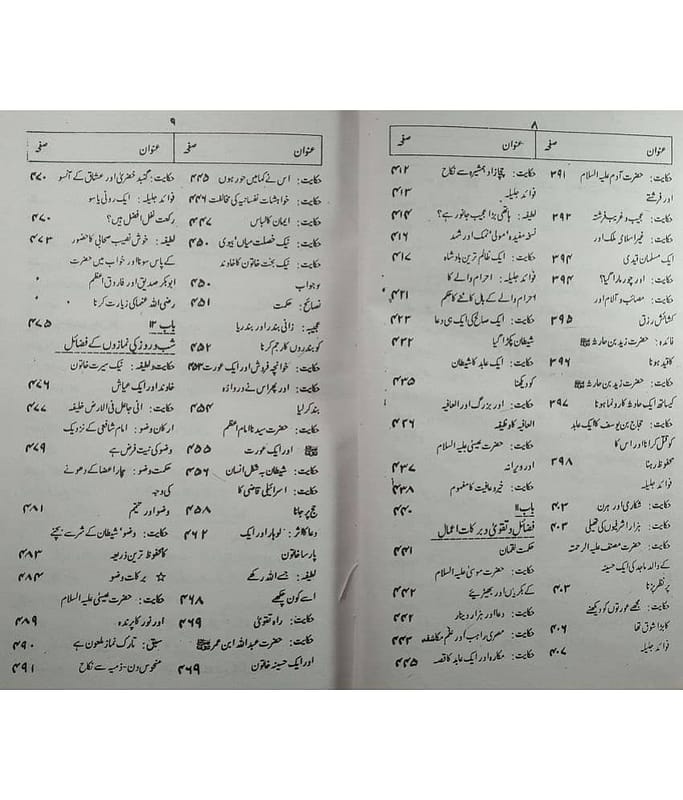 ۸
عنوان صفحہ
حکایت: حضرت آدم علیہ السلام ۳۹۱
اور فرشتے
حکایت: عجیب و غریب فرشتہ ۳۹۲
حکایت: غیر اسلامی ملک اور
ایک مسلمان قیدی ۳۹۴
حکایت: اور چور مارا گیا؟ ۳۹۴
حکایت: مصائب و آلام اور
کشائش رزق ۳۹۵
فائدہ: حضرت زید بن حارثہ
کا قید ہونا ۳۹۶
حکایت: حضرت زید بن حارثہ
کیساتھ ایک حادثہ کا رونما ہونا ۳۹۷
حکایت: حجاج بن یوسف کا ایک عابد
کو قتل کرانا اور اس کا
محفوظ رہنا ۳۹۸
فوائد جلیلہ
حکایت: شکاری اور ہرن ۴۰۲
حکایت: ہزار اشرفیوں کی تھیلی ۴۰۳
حکایت: حضرت مصنف علیہ الرحمتہ
کے والد ماجد کی ایک حسینہ
پر نظر پڑنا ۴۰۳
حکایت: مجھے عورتوں کو دیکھنے
کا بڑا شوق تھا ۴۰۶
فوائد جلیلہ ۴۰۷
عنوان صفحہ
حکایت: چچا زاد ہمشیرہ سے نکاح ۴۱۲
فوائد جلیلہ ۴۱۳
لطیفہ: ہاتھی بڑا عجیب جانور ہے؟ ۴۱۴
نسخہ مفیدہ 'مولی' نمک اور شہد ۴۱۶
حکایت: ایک ظالم ترین بادشاہ ۴۱۷
فوائد جلیلہ: احرام والے کا
احرام والے کے بال کاٹنے کا حکم ۴۲۱
حکایت: ایک صالح کی ایک ہی دعا ۴۲۳
شیطان پکڑا گیا ۴۳۲
حکایت: ایک عابد کا شیطان
کو دیکھنا ۴۳۵
حکایت: اور بزرگ اور العافیہ
العافیہ کا وظیفہ ۴۳۶
حکایت: حضرت عیسیٰ علیہ السلام
اور ویرانہ ۴۳۷
حکایت: خیر و عافیت کا مفہوم ۴۳۸
باب ۱۱ ۴۴۰
فضائل و تقویٰ و برکات اعمال
حکمت لقمان ۴۴۱
حکایت: حضرت موسیٰ علیہ السلام
کے بکریاں اور بھیڑیئے ۴۴۲
حکایت: دعا اور ہزار دینار ۴۴۲
حکایت: مصری راہب اور علم مکاشفہ ۴۴۳
حکایت: مکارہ اور ایک عابد کا قصہ ۴۴۵
۹
عنوان صفحہ
حکایت: اس نے کہا میں حور ہوں ۴۴۵
حکایت: خواہشات نفسانیہ کی مخالفت ۴۴۶
حکایت: ایمان کا لباس ۴۴۷
حکایت: نیک خصلت میاں 'بیوی ۴۵۰
حکایت: نیک بخت خاتون کا خاوند
و جواب ۴۵۰
نصائح: حکمت ۴۵۱
عجیبہ: زانی بندر اور بندریا
کو بندروں کا رجم کرنا ۴۵۲
حکایت: خوانچہ فروش اور ایک عورت ۴۵۳
حکایت: اور پھر اس نے دروازہ
بند کر لیا ۴۵۴
حکایت: حضرت سیدنا امام اعظم
اور ایک عورت ۴۵۵
حکایت: شیطان بہ شکل انسان ۴۵۶
حکایت: اسرائیلی قاضی کا
حج پر جانا ۴۵۸
دعا کا اثر: لوہار اور ایک ۴۶۲
پارسا خاتون
لطیفہ: جسے اللہ رکھے
اسے کون چکھے ۴۶۸
حکایت: راہ تقویٰ ۴۶۹
حکایت: حضرت عبداللہ ابن عمر
اور ایک حسینہ خاتون ۴۶۹
عنوان صفحہ
حکایت: گنبد خضریٰ اور عشاق کے آنسو ۴۷۰
فوائد جلیلہ: ایک روٹی یا سو
رکعت نفل افضل ہیں؟ ۴۷۰
لطیفہ: خوش نصیب صحابی کا حضور ۴۷۳
کے پاس سونا اور خواب میں حضرت
ابوبکر صدیق اور فاروق اعظم
رضی اللہ عنہما کی زیارت کرنا
باب ۱۲ ۴۷۵
شب و روز کی نمازوں کے فضائل
حکایت و لطیفہ: نیک سیرت خاتون
خاوند اور ایک عیاش ۴۷۶
حکایت: انی جاعل فی الارض خلیفہ ۴۷۷
ارکان وضو: امام شافعی کے نزدیک
وضو کی نیت فرض ہے ۴۷۹
حکمت وضو: چار اعضا کے دھونے
کی وجہ
وضو اور تیمم ۴۸۱
حکایت: وضو' شیطان کے شر سے بچنے
کا محفوظ ترین ذریعہ ۴۸۳
☆ برکات وضو ۴۸۴
حکایت: حضرت عیسیٰ علیہ السلام
اور نور کا پرندہ ۴۸۹
سبق: تارک نماز ملعون ہے ۴۹۰
منحوس دن۔ ذمیہ سے نکاح ۴۹۱